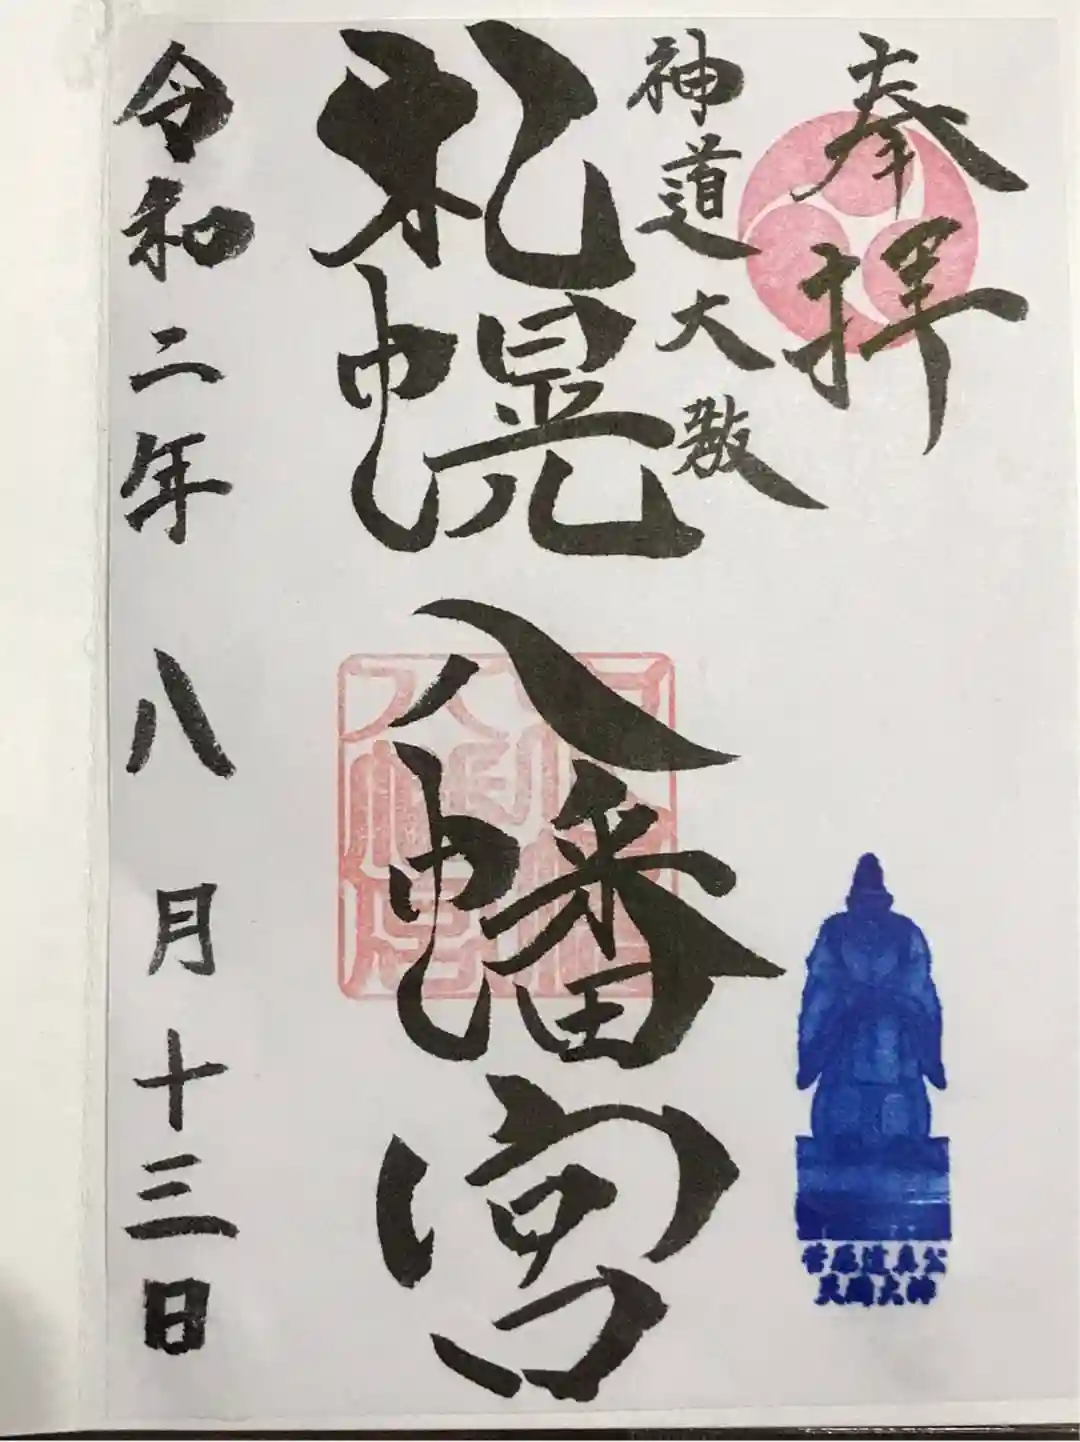 奉拝
神道大教
札幌八幡宮
令和二年八月十三日
菅原道真公
天満大神